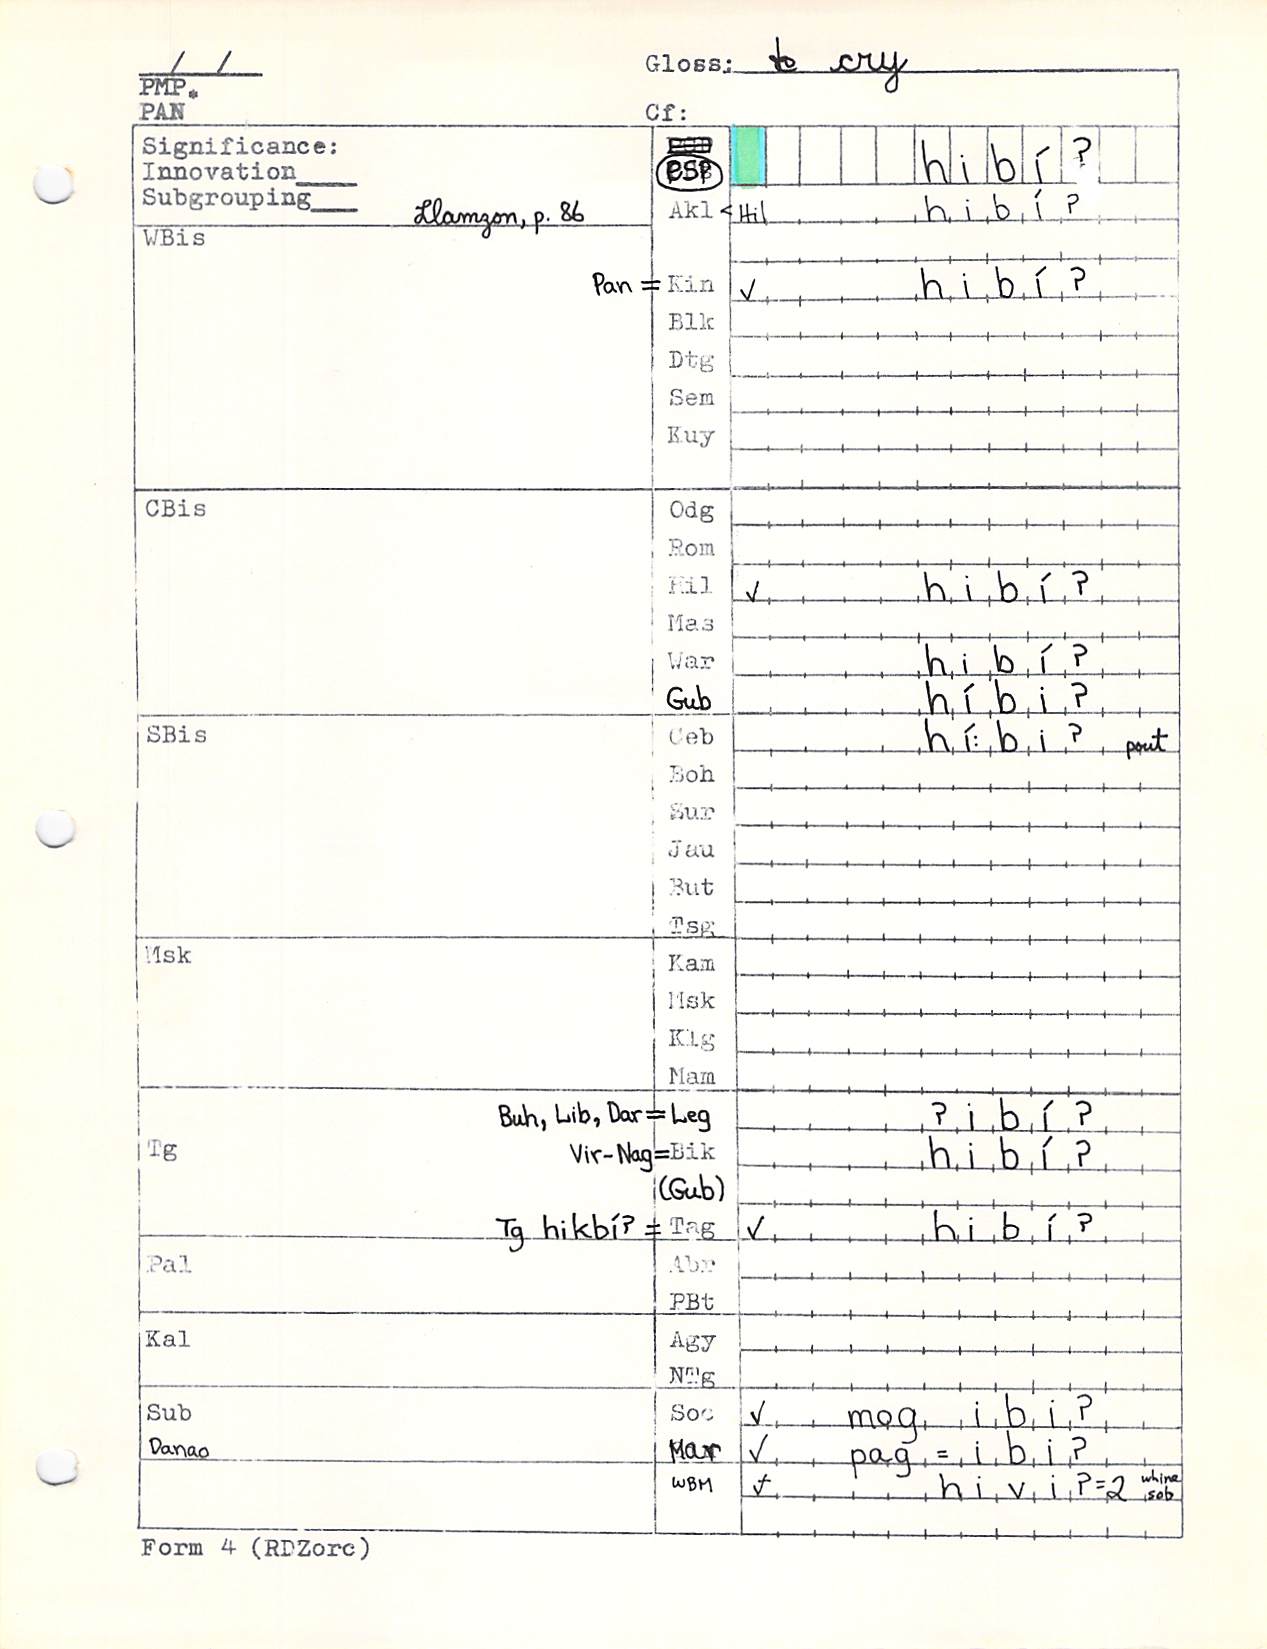 / / Gloss: to cry
PMP.
PAN Cf:
Significance:
Innovation____ PSP h i b í ?
Subgrouping___ Llamzon, p. 86 Akl < Hil h i b í ?
WBis
Pan = Kin ✓ h i b í ?
Blk
Dtg
Sem
Kuy
CBis Odg
Rom
Hil ✓ h i b í ?
Mas
War h i b í ?
Gub h í b i ?
SBis Ceb h í: b i ? pout
Boh
Sur
Jau
But
Tsg
Msk Kam
Msk
Klg
Mam
Buh, Lib, Dar = Leg ? i b í ?
Tg Vir-Nag = Bik h i b í ?
(Gub)
Tg hikbí? ≠ Tag ✓ h i b í ?
Pal Abr
PBt
Kal Agy
Sub Soc ✓ mog i b i ?
Danao Mar ✓ pag = i b i ?
WBM ✓ h i v i ? = 2 whine sob
Form 4 (RDZorc)